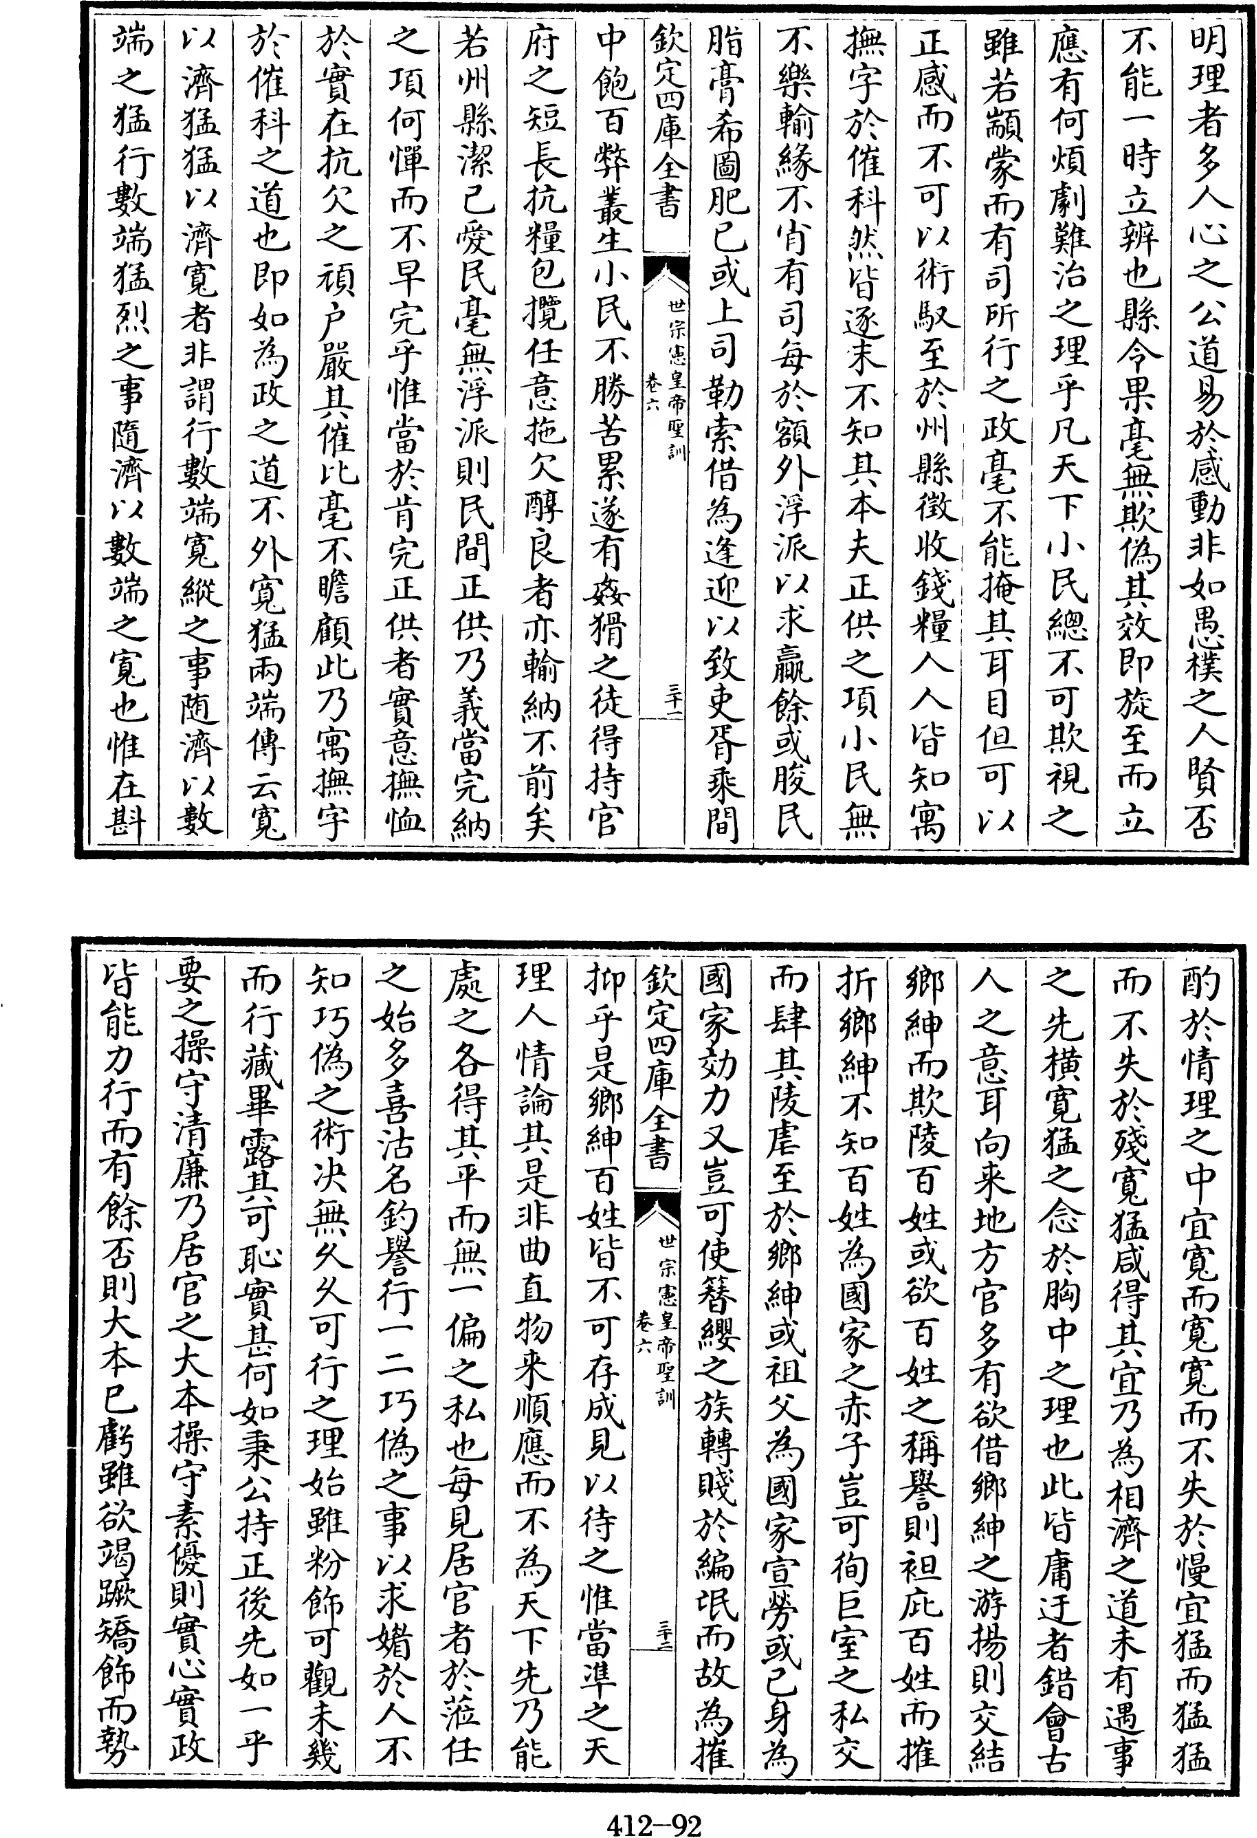 明理者多人心之公道易於感動非如愚樸之人賢否
不能一時立辨也縣令果毫無欺偽其效即旋至而立
應有何煩劇難治之理乎凡天下小民總不可欺視之
雖若顓蒙而有司所行之政毫不能掩其耳目但可以
正感而不可以術馭至於州縣徵收錢糧人人皆知寓
撫字於催科然皆逐末不知其本夫正供之項小民無
不樂輸緣不肖有司每於額外浮派以求贏餘或朘民
脂膏希圖肥已或上司勒索借為逢迎以致吏胥乘間
欽定四庫全書
世宗憲皇帝聖訓
卷六
三十一
中飽百弊叢生小民不勝苦累遂有姦猾之徒得持官
府之短長抗糧包攬任意拖欠醇良者亦輸納不前矣
若州縣潔已愛民毫無浮派則民間正供乃義當完納
之項何憚而不早完乎惟當於肯完正供者實意撫恤
於實在抗欠之頑户嚴其催比毫不瞻顧此乃寓撫字
於催科之道也即如為政之道不外寬猛兩端傳云寬
以濟猛猛以濟寬者非謂行數端寬縱之事随濟以數
端之猛行數端猛烈之事隨濟以數端之寬也惟在斟
酌於情理之中宜寬而寬寬而不失於慢宜猛而猛猛
而不失於殘寬猛咸得其宜乃為相濟之道未有遇事
之先橫寛猛之念於胸中之理也此皆庸迂者錯會古
人之意耳向来地方官多有欲借鄉紳之游揚則交結
鄉紳而欺陵百姓或欲百姓之稱譽則袒庇百姓而摧
折鄉紳不知百姓為國家之赤子豈可徇巨室之私交
而肆其陵虐至於鄉紳或祖父為國家宣勞或已身為
國家効力又豈可使簪纓之族轉賤於編氓而故為摧
欽定四庫全書
世宗憲皇帝聖訓
卷六
三十二
抑乎是鄉紳百姓皆不可存成見以待之惟當準之天
理人情論其是非曲直物来順應而不為天下先乃能
處之各得其平而無一偏之私也每見居官者於蒞任
之始多喜沽名釣譽行一二巧偽之事以求媚於人不
知巧偽之術决無久久可行之理始雖粉飾可觀未幾
而行藏畢露其可恥實甚何如秉公持正後先如一乎
要之操守清廉乃居官之大本操守素優則實心實政
皆能力行而有餘否則大本已虧雖欲竭蹶矯飾而勢
412-92